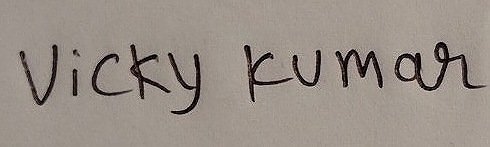 Vicky Kumar